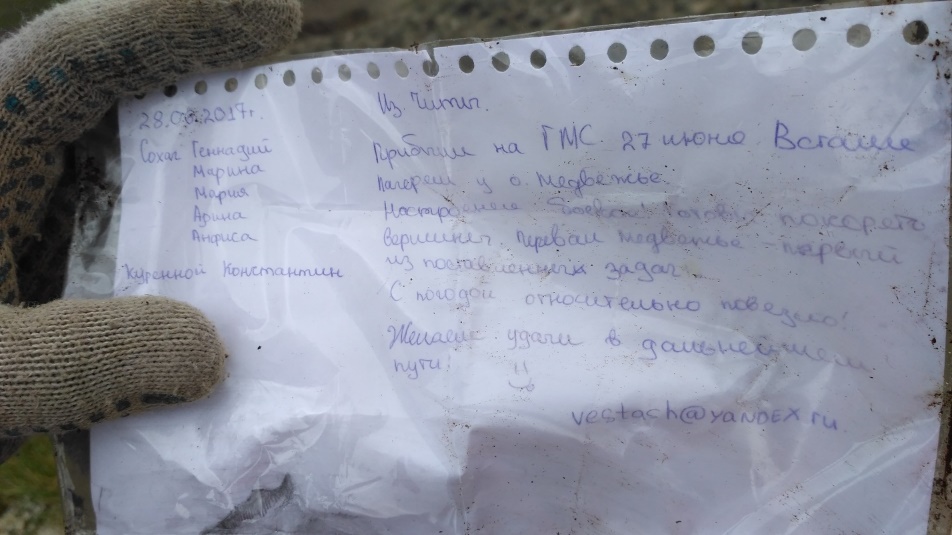 28.06.2017г.
Сохач Геннадий
Марина
Мария
Арина
Анфиса
Куренной Константин
Из Читы.
Прибыли на ГМС 27 июня Встали
лагерем у о. Медвежье
Настроение боевое! готовы покорять
вершины. Перевал Медвежье первый
из поставленных задач
С погодой относительно повезло!
Желаем удачи в дальнейшем
пути!
vestach@yandex.ru